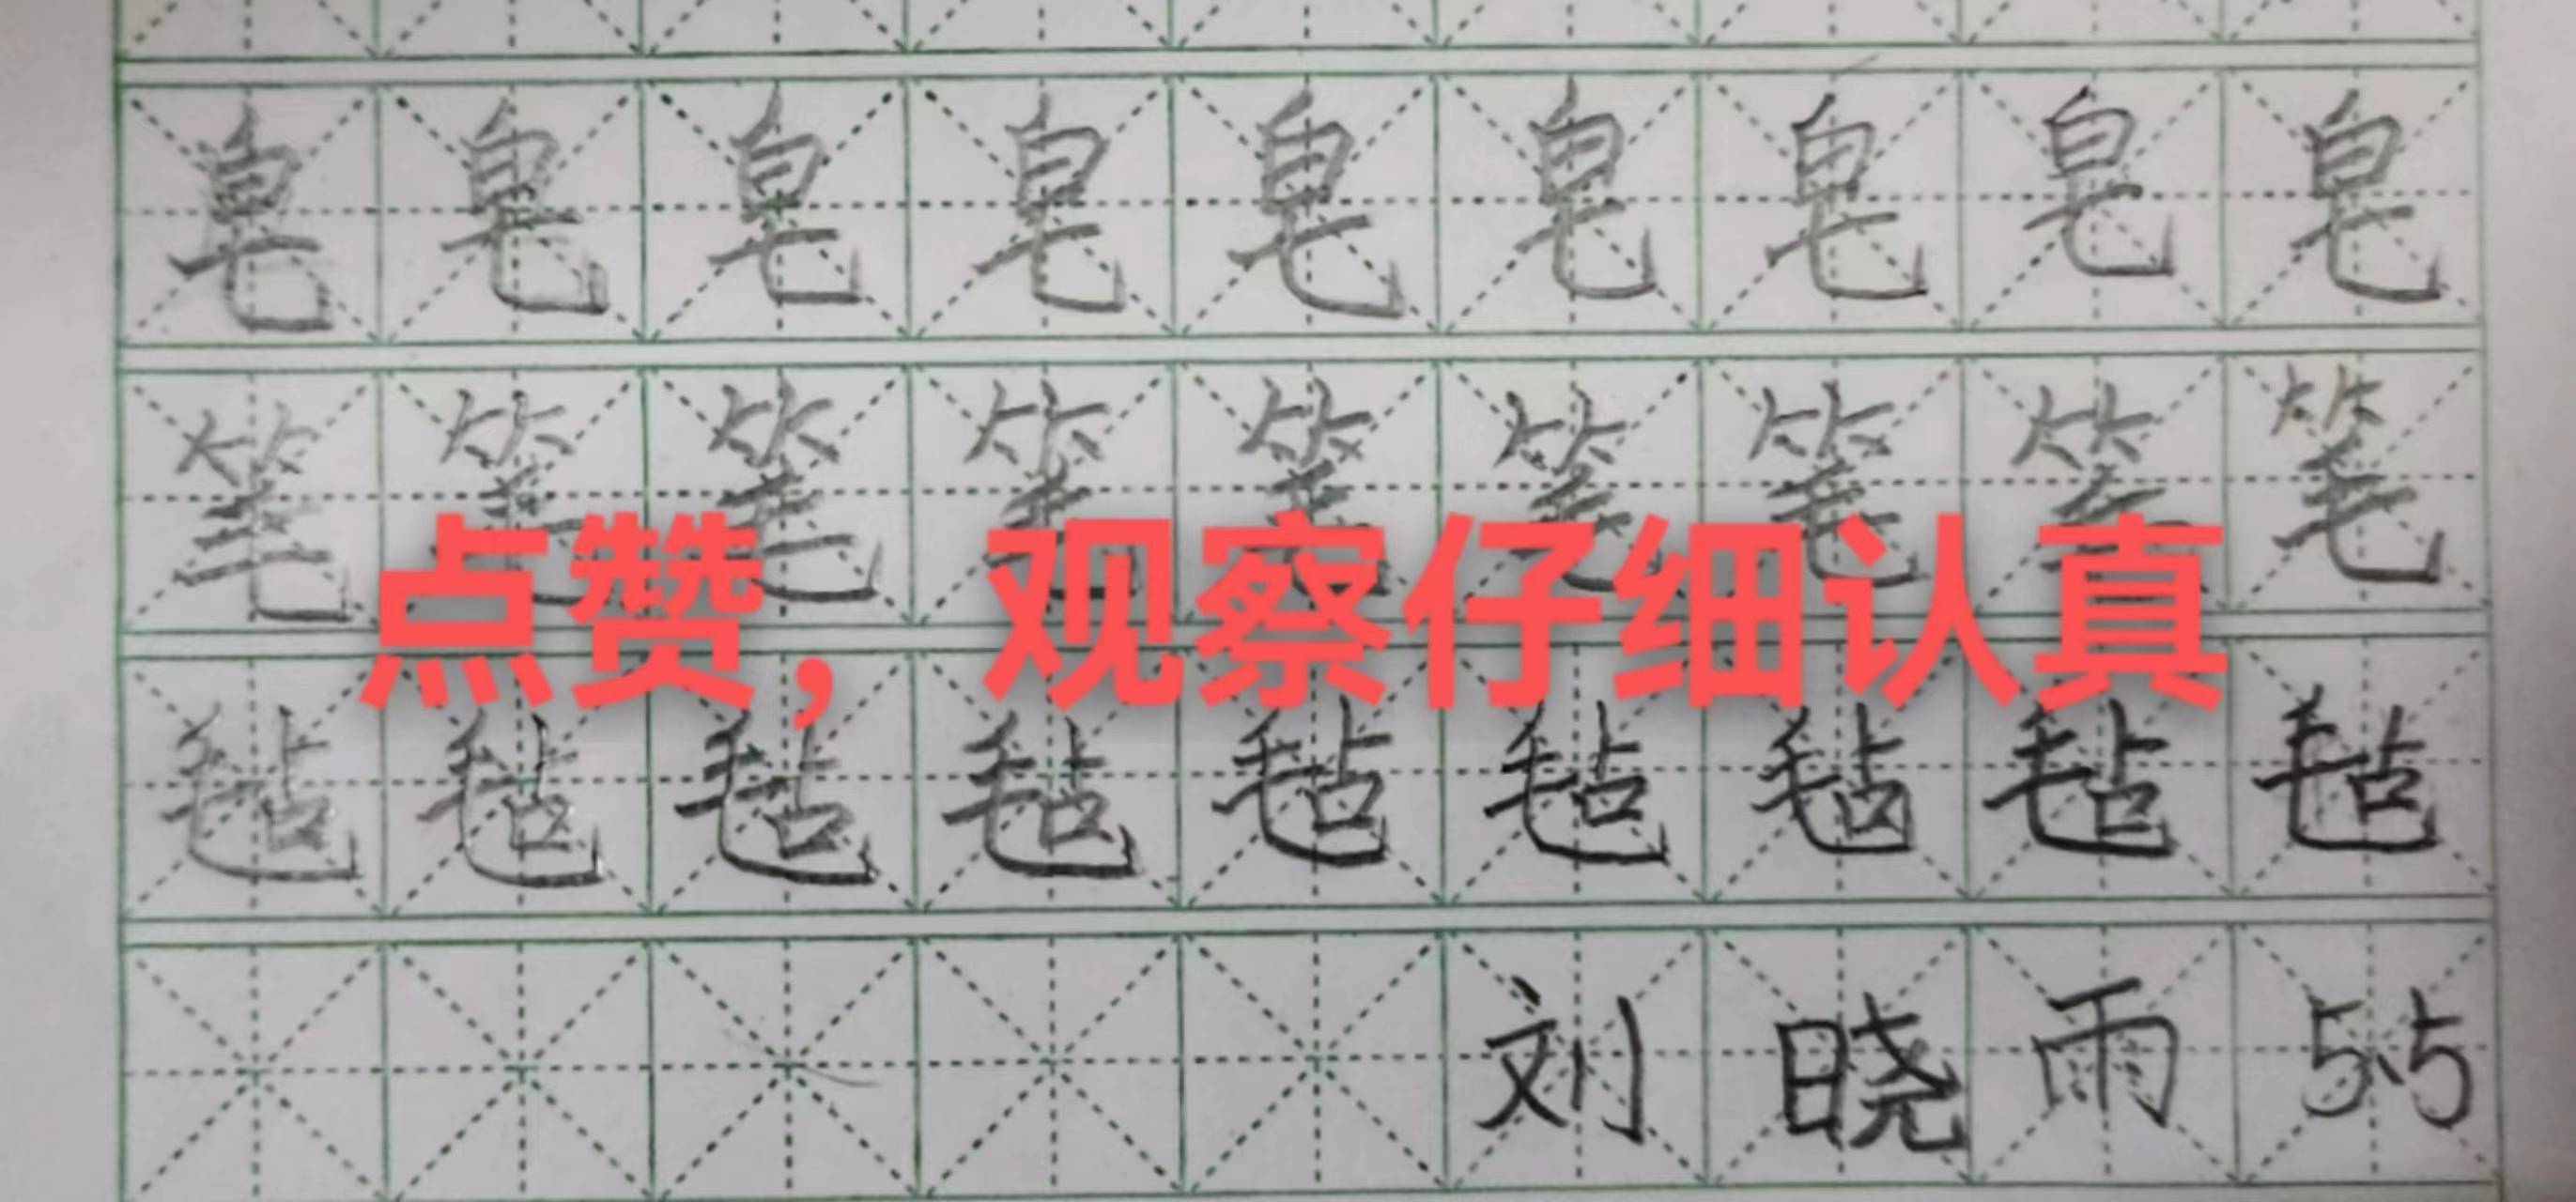 皂皂皂皂皂皂皂皂皂
笔笔笔笔笔笔笔笔笔
点赞，观察仔细认真
毡毡毡毡毡毡毡毡毡
刘晓雨5.5